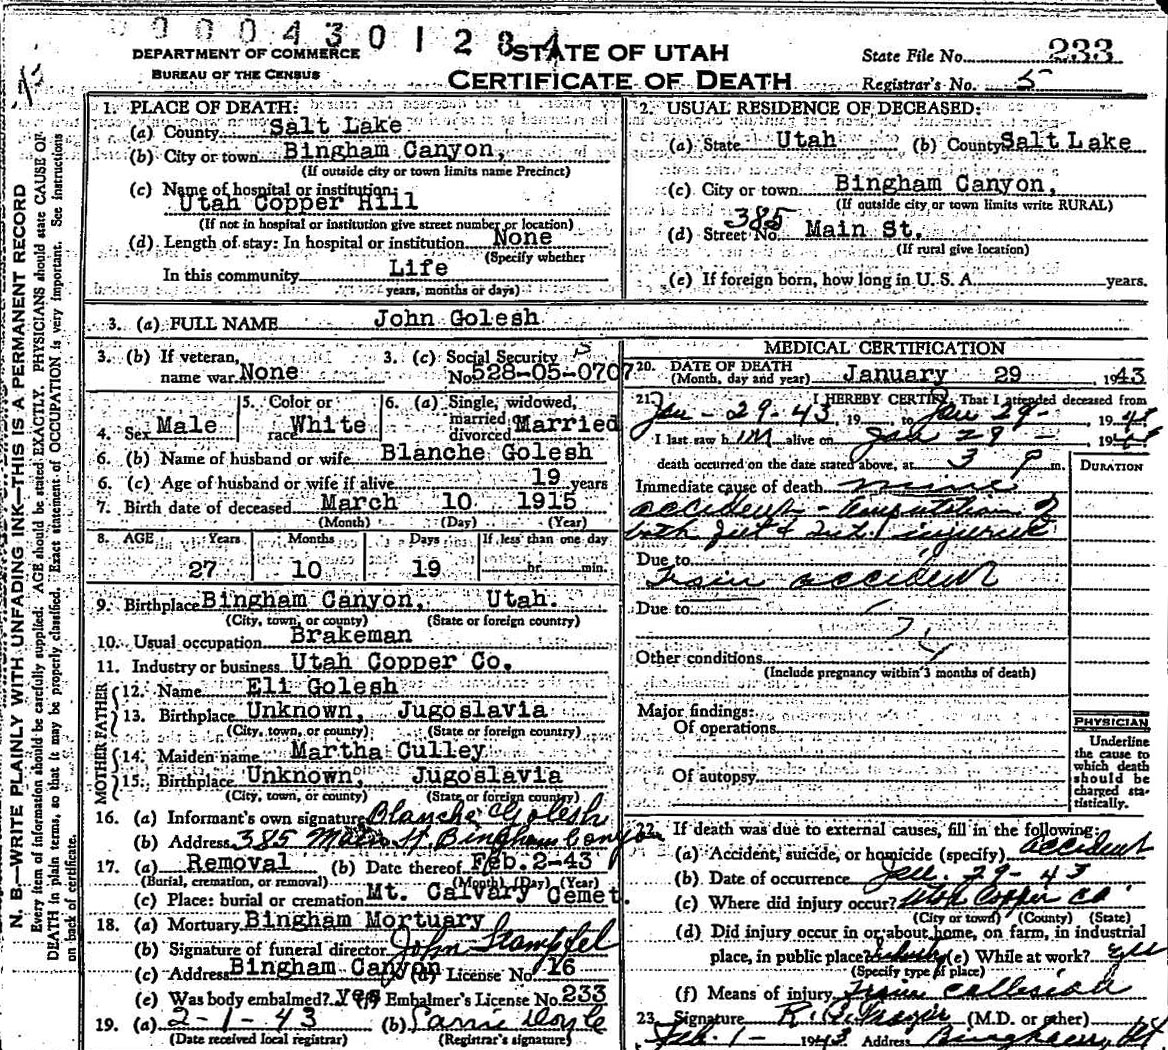 0 0 0 4 3 0 1 2 8 4
DEPARTMENT OF COMMERCE
BUREAU OF THE CENSUS
STATE OF UTAH
CERTIFICATE OF DEATH
State File No. 233
Registrar's No. 5
N. B.—WRITE PLAINLY WITH UNFADING INK—THIS IS A PERMANENT RECORD
Every item of information should be carefully supplied. AGE should be stated EXACTLY. PHYSICIANS should state CAUSE OF
DEATH in plain terms, so that it may be properly classified. Exact statement of OCCUPATION is very important. See instructions
on back of certificate.
1. PLACE OF DEATH:
(a) County Salt Lake
(b) City or town Bingham Canyon,
(If outside city or town limits name Precinct)
(c) Name of hospital or institution:
Utah Copper Hill
(If not in hospital or institution give street number or location)
(d) Length of stay: In hospital or institution None
(Specify whether
In this community Life
years, months or days)
2. USUAL RESIDENCE OF DECEASED:
(a) State Utah (b) County Salt Lake
(c) City or town Bingham Canyon,
(If outside city or town limits write RURAL)
(d) Street No. 385 Main St.
(If rural give location)
(e) If foreign born, how long in U. S. A. years.
3. (a) FULL NAME John Golesh
3. (b) If veteran, name war None
3. (c) Social Security No. 528-05-0707
4. Sex Male
5. Color or race White
6. (a) Single, widowed, married, divorced Married
6. (b) Name of husband or wife Blanche Golesh
6. (c) Age of husband or wife if alive 19 years
7. Birth date of deceased March 10 1915
(Month) (Day) (Year)
8. AGE Years Months Days If less than one day
27 10 19 hr. min.
9. Birthplace Bingham Canyon, Utah.
(City, town, or county) (State or foreign country)
10. Usual occupation Brakeman
11. Industry or business Utah Copper Co.
FATHER
12. Name Eli Golesh
13. Birthplace Unknown, Jugoslavia
(City, town, or county) (State or foreign country)
MOTHER
14. Maiden name Martha Culley
15. Birthplace Unknown, Jugoslavia
(City, town, or county) (State or foreign country)
16. (a) Informant's own signature Blanche Golesh
(b) Address 385 Main St. Bingham Canyon
17. (a) Removal (b) Date thereof Feb. 2-43
(Burial, cremation, or removal) (Month) (Day) (Year)
(c) Place: burial or cremation Mt. Calvary Cemet.
18. (a) Mortuary Bingham Mortuary
(b) Signature of funeral director John Stampfel
(c) Address Bingham Canyon (d) License No. 16
(e) Was body embalmed? Yes (f) Embalmer's License No. 233
19. (a) 2-1-43 (b) Carrie Doyle
(Date received local registrar) (Registrar's signature)
MEDICAL CERTIFICATION
20. DATE OF DEATH
(Month, day and year) January 29 , 1943
21. I HEREBY CERTIFY, That I attended deceased from
Jan - 29 - 43, 19 to Jan 29 - , 1943
I last saw h im alive on Jan 29 - , 1943
death occurred on the date stated above, at 3 P m.
DURATION
Immediate cause of death mine
accident - Amputation of
both feet & Int. injuries
Due to
Train accident
Due to
Other conditions
(Include pregnancy within 3 months of death)
Major findings:
Of operations
Of autopsy
PHYSICIAN
Underline
the cause to
which death
should be
charged sta-
tistically.
22. If death was due to external causes, fill in the following:
(a) Accident, suicide, or homicide (specify) accident
(b) Date of occurrence Jan. 29 - 43
(c) Where did injury occur? Utah Copper Co.
(City or town) (County) (State)
(d) Did injury occur in or about home, on farm, in industrial
place, in public place? Industry (e) While at work? yes
(Specify type of place)
(f) Means of injury Train Collision
23. Signature R. G. Frazier (M.D. or other)
Feb. 1 - 1943 Address Bingham, Ut